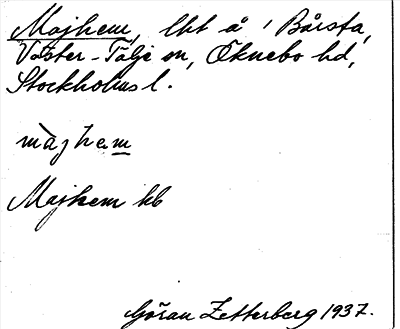 Majhem, lht å Bårsta,
Väster-Tälje sn, Öknebo hd,
Stockholms l.
màjhem
Majhem hb
Göran Zetterberg 1937.